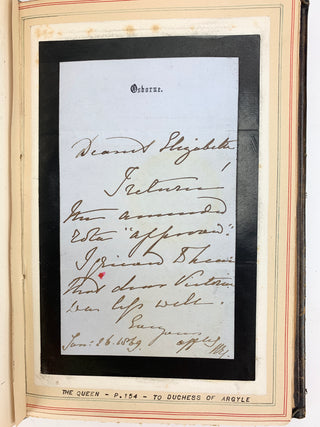 Osborne.
Dearest Elizabeth
I return
the amended
rota "approved".
I grieved to hear
that dear Victoria
was less well.
Ever yours
affly
Jan: 26. 1869.
THE QUEEN - P.154 - TO DUCHESS OF ARGYLE